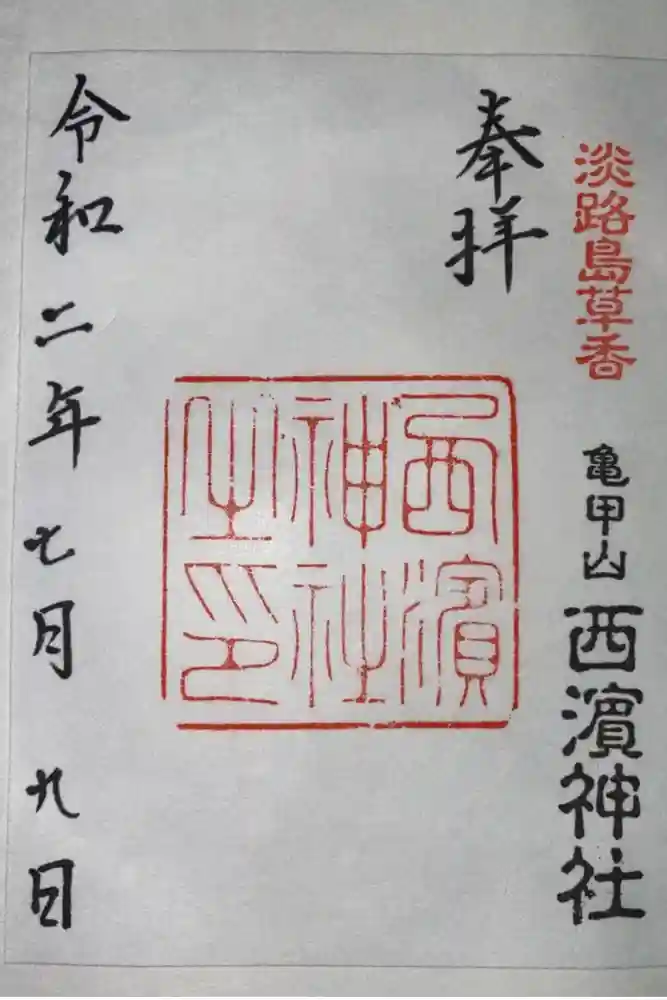 淡路島草香
亀甲山 西濵神社
奉拝
西濱
神社
之印
令和二年七月九日